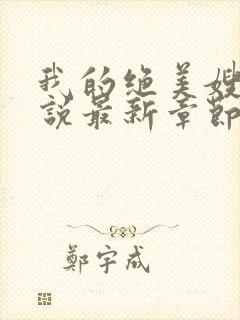 我的绝美嫂
說最新章節
鄭宇成